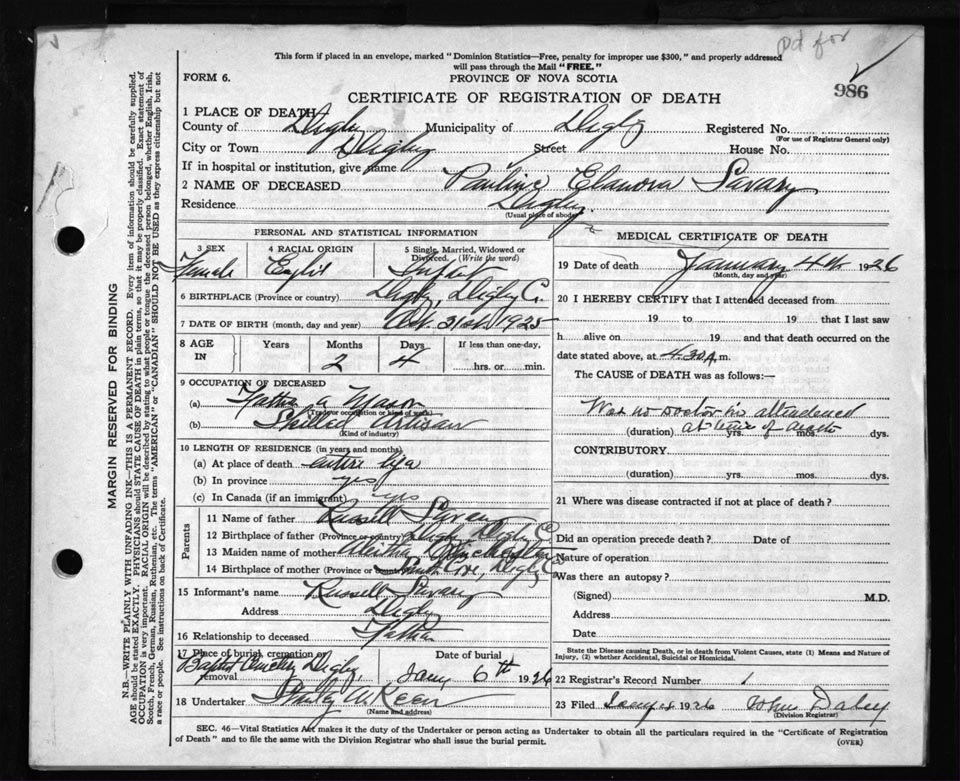 Pd for
This form if placed in an envelope, marked "Dominion Statistics—Free, penalty for improper use $300," and properly addressed
will pass through the Mail "FREE."
FORM 6.
PROVINCE OF NOVA SCOTIA
986
CERTIFICATE OF REGISTRATION OF DEATH
1 PLACE OF DEATH
County of Digby Municipality of Digby Registered No.
(For use of Registrar General only)
City or Town Digby Street House No.
If in hospital or institution, give name
2 NAME OF DECEASED Pauline Elanora Savary
Residence Digby
(Usual place of abode)
PERSONAL AND STATISTICAL INFORMATION
3 SEX 4 RACIAL ORIGIN 5 Single, Married, Widowed or
Divorced. (Write the word)
Female English Infant
6 BIRTHPLACE (Province or country) Digby, Digby C.
7 DATE OF BIRTH (month, day and year) Oct. 31st 1925
8 AGE IN Years Months Days If less than one-day,
2 4 hrs. or min.
9 OCCUPATION OF DECEASED
(a) Father a Mason
(Trade or occupation or kind of work)
(b) Skilled Artisan
(Kind of industry)
10 LENGTH OF RESIDENCE (in years and months)
(a) At place of death entire life
(b) In province yes
(c) In Canada (if an immigrant) yes
Parents
11 Name of father Russell Savary
12 Birthplace of father (Province or country) Digby, Digby C.
13 Maiden name of mother
14 Birthplace of mother (Province or country) Smith Cove, Digby C.
15 Informant's name Russell Savary
Address Digby
16 Relationship to deceased Father
17 Place of burial, cremation or removal Date of burial
Baptist Digby, Jany 6th 1926
18 Undertaker
(Name and address)
MEDICAL CERTIFICATE OF DEATH
19 Date of death January 4th 1926
(Month, day and year)
20 I HEREBY CERTIFY that I attended deceased from
19 to 19 that I last saw
h alive on 19 and that death occurred on
date stated above, at 4.30 A m.
The CAUSE of DEATH was as follows:
Was no Doctor in attendence
at time of death
(duration) yrs. mos. dys.
CONTRIBUTORY
(duration) yrs. mos. dys.
21 Where was disease contracted if not at place of death?
Did an operation precede death? Date of
Nature of operation
Was there an autopsy?
(Signed) M.D.
Address
Date
State the Disease causing Death, or in death from Violent Causes, state (1) Means and Nature of
Injury, (2) whether Accidental, Suicidal or Homicidal.
22 Registrar's Record Number 1
23 Filed Jany 1926 John Daley
(Division Registrar)
SEC. 46—Vital Statistics Act makes it the duty of the Undertaker or person acting as Undertaker to obtain all the particulars required in the "Certificate of Registration
of Death" and to file the same with the Division Registrar who shall issue the burial permit.
(OVER)
MARGIN RESERVED FOR BINDING
N.B.—WRITE PLAINLY WITH UNFADING INK—THIS IS A PERMANENT RECORD. Every item of information should be carefully supplied.
AGE should be stated EXACTLY. PHYSICIANS should STATE CAUSE OF DEATH in plain terms, so that it may be properly classified. Exact statement of
OCCUPATION is very important. RACIAL ORIGIN will be described by stating to what people or tongue the deceased person belonged, whether English, Irish,
Scotch, French, German, Russian, Ruthenian, etc. The terms "AMERICAN" or "CANADIAN" SHOULD NOT BE USED as they express citizenship but not
a race or people. See instructions on back of Certificate.